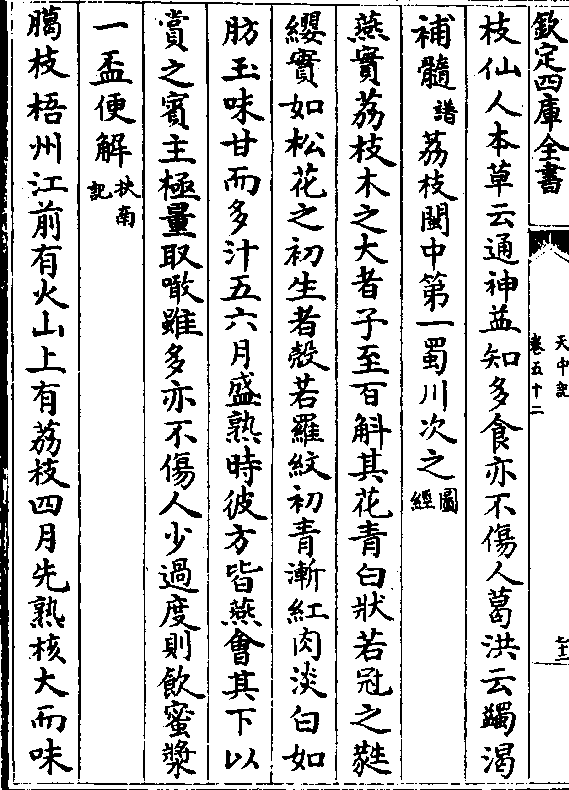 欽定四庫全書
天中記
卷五十二
枝仙人本草云通神益知多食亦不傷人葛洪云蠲渴
補髓譜荔枝閩中第一蜀川次之圖經
燕實荔枝木之大者子至百斛其花青白狀若冠之蕤
纓實如松花之初生者殼若羅紋初青漸紅肉淡白如
肪玉味甘而多汁五六月盛熟時彼方皆燕會其下以
賞之賓主極量取噉雖多亦不傷人少過度則飲蜜漿
一盃便解扶南記
臈枝梧州江前有火山上有荔枝四月先熟核大而味